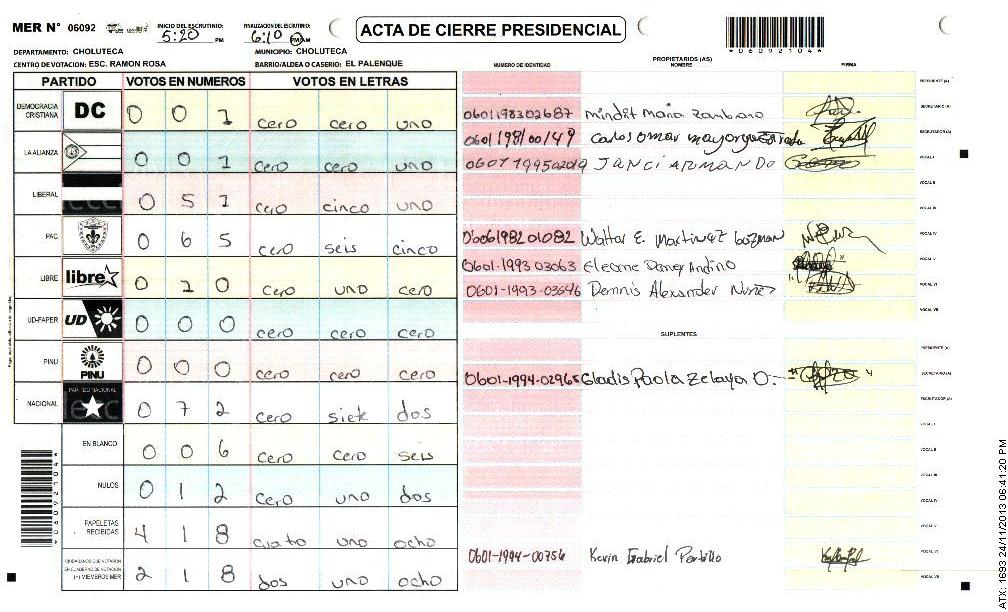 MER Nº 06092
INICIO DEL ESCRUTINIO: 5:20 PM
FINALIZACION DEL ESCRUTINIO: 6:10 PM
ACTA DE CIERRE PRESIDENCIAL
*06092104*
DEPARTAMENTO: CHOLUTECA
MUNICIPIO: CHOLUTECA
CENTRO DE VOTACION: ESC. RAMON ROSA
BARRIO/ALDEA O CASERIO: EL PALENQUE
PARTIDO VOTOS EN NUMEROS VOTOS EN LETRAS
DEMOCRACIA CRISTIANA DC 0 0 1 cero cero uno
LA ALIANZA 0 0 1 cero cero uno
LIBERAL 0 5 1 cero cinco uno
PAC 0 6 5 cero seis cinco
LIBRE libre 0 1 0 cero uno cero
UD-FAPER UD 0 0 0 cero cero cero
PINU PINU 0 0 0 cero cero cero
NACIONAL PARTIDO NACIONAL 0 7 2 cero siete dos
EN BLANCO 0 0 6 cero cero seis
NULOS 0 1 2 cero uno dos
PAPELETAS RECIBIDAS 4 1 8 cuatro uno ocho
CIUDADANOS QUE VOTARON EN CUADERNO DE VOTACION (+) MIEMBROS MER 2 1 8 dos uno ocho
*06092104*
PROPIETARIOS (AS)
NUMERO DE IDENTIDAD NOMBRE FIRMA
PRESIDENTE (A)
0601198302687 Maria Zambrano SECRETARIO (A)
Carlos omar ESCRUTADOR (A)
VOCAL I
VOCAL II
VOCAL III
0606198201082 Walter E. Martinez Guzman VOCAL IV
0601-1993 03063 Andino VOCAL V
0601-1993-03546 Dennis Alexander Nuñez VOCAL VI
VOCAL VII
SUPLENTES
PRESIDENTE (A)
0601-1994-02965 Gladis Paola Zelaya O. SECRETARIO (A)
ESCRUTADOR (A)
VOCAL I
VOCAL II
VOCAL III
VOCAL IV
VOCAL V
0601-1994-00756 Kevin Gabriel Portillo VOCAL VI
VOCAL VII
ATX: 1693 24/11/2013 06:41:20 PM